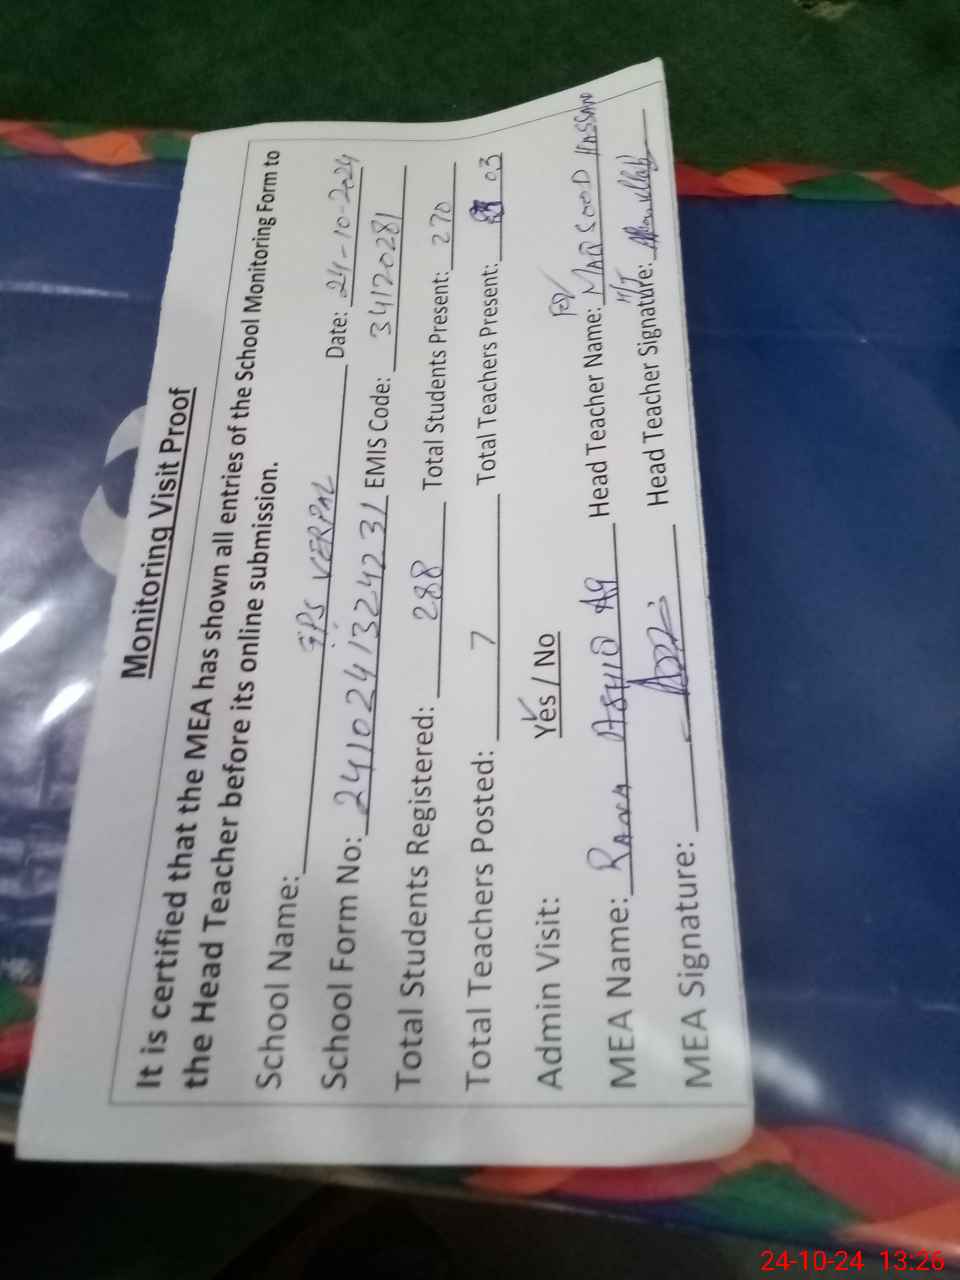 Monitoring Visit Proof
It is certified that the MEA has shown all entries of the School Monitoring Form to
the Head Teacher before its online submission.
School Name: GPS VERPAL Date: 24-10-2024
School Form No: 2410241324231 EMIS Code: 34120281
Total Students Registered: 288 Total Students Present: 270
Total Teachers Posted: 7 Total Teachers Present: 03
Admin Visit: Yes / No
For
MEA Name: RANA ASHIQ Ag Head Teacher Name: MAQSOOD HASSAN
MEA Signature: Head Teacher Signature:
24-10-24 13:26